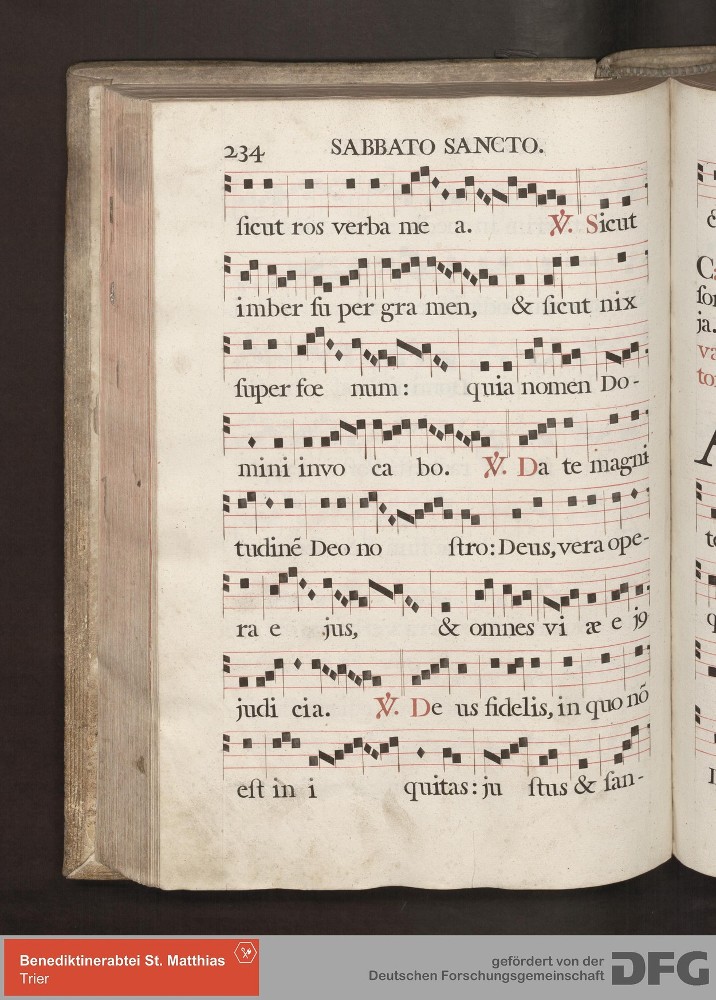 234 SABBATO SANCTO.
ſicut ros verba me a. ℣. Sicut
imber ſu per gra men, & ſicut nix
ſuper fœ num: quia nomen Do-
mini invo ca bo. ℣. Da te magni
tudinẽ Deo no ſtro: Deus, vera ope-
ra e jus, & omnes vi æ e jꝰ
judi cia. ℣. De us fidelis, in quo nõ
eſt in i quitas: ju ſtus & ſan-
&
ja.
Benediktinerabtei St. Matthias
Trier
gefördert von der
Deutschen Forschungsgemeinschaft
DFG